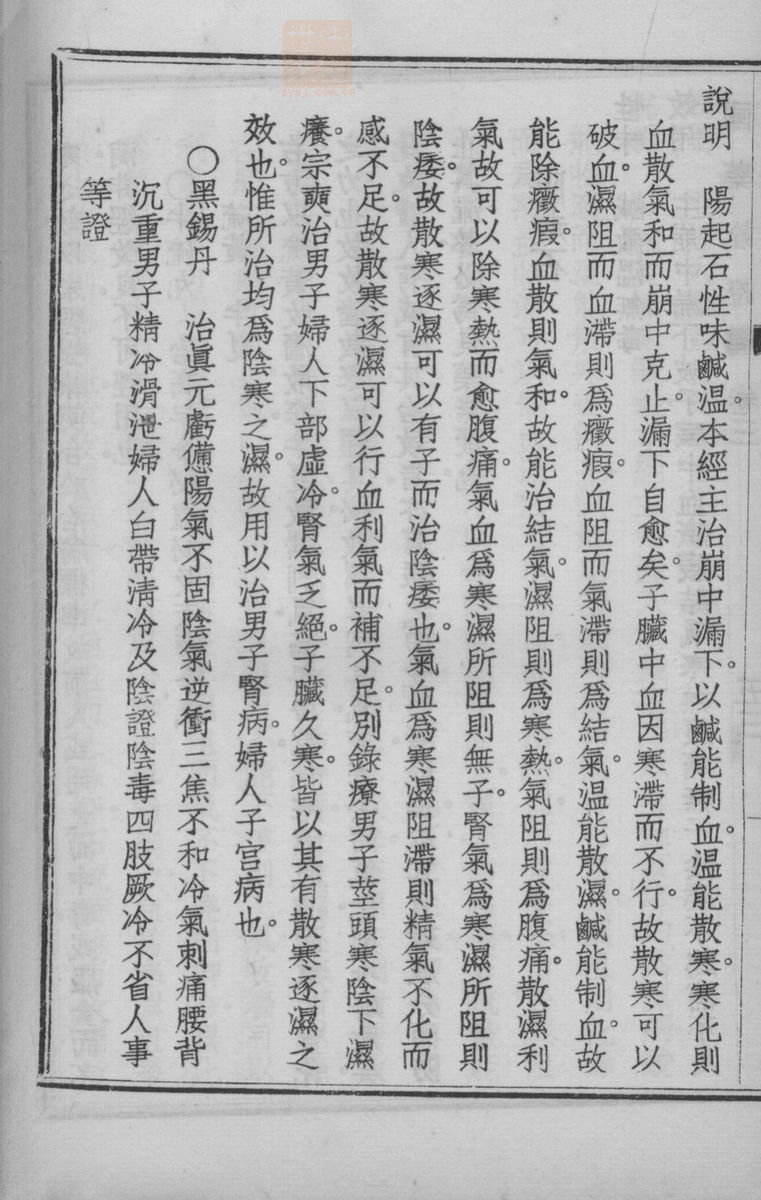 說明　陽起石性味鹹溫。本經主治崩中漏下。以鹹能制血。溫能散寒。寒化則
血散氣和而崩中克止。漏下自愈矣。子臟中血因寒滯而不行。故散寒可以
破血。濕阻而血滯則爲癥瘕。血阻而氣滯則爲結氣。溫能散濕。鹹能制血。故
能除癥瘕。血散則氣和。故能治結氣。濕阻則爲寒熱。氣阻則爲腹痛。散濕利
氣故可以除寒熱而愈腹痛。氣血爲寒濕所阻則無子。腎氣爲寒濕所阻則
陰痿。故散寒逐濕可以有子而治陰痿也。氣血爲寒濕阻滯則精氣不化而
感不足。故散寒逐濕可以行血利氣而補不足。別錄療男子莖頭寒陰下濕
癢。宗奭治男子婦人下部虛冷。腎氣乏絕。子臟久寒。皆以其有散寒逐濕之
效也。惟所治均爲陰寒之濕。故用以治男子腎病。婦人子宮病也。
○黑錫丹　治眞元虧憊陽氣不固陰氣逆衝三焦不和冷氣刺痛腰背
沉重男子精冷滑泄婦人白帶淸冷及陰證陰毒四肢厥冷不省人事
等證
zysj.com.cn